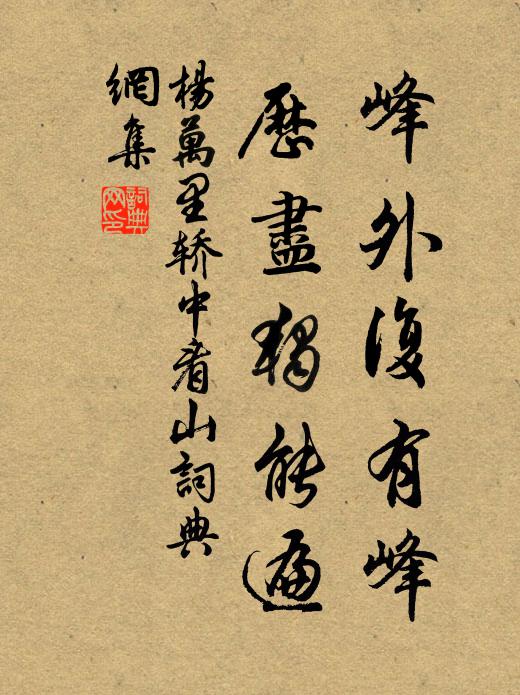 峰外復有峰
歷盡獨能遍
楊萬里轿中看山詞典
網集
詞典網印